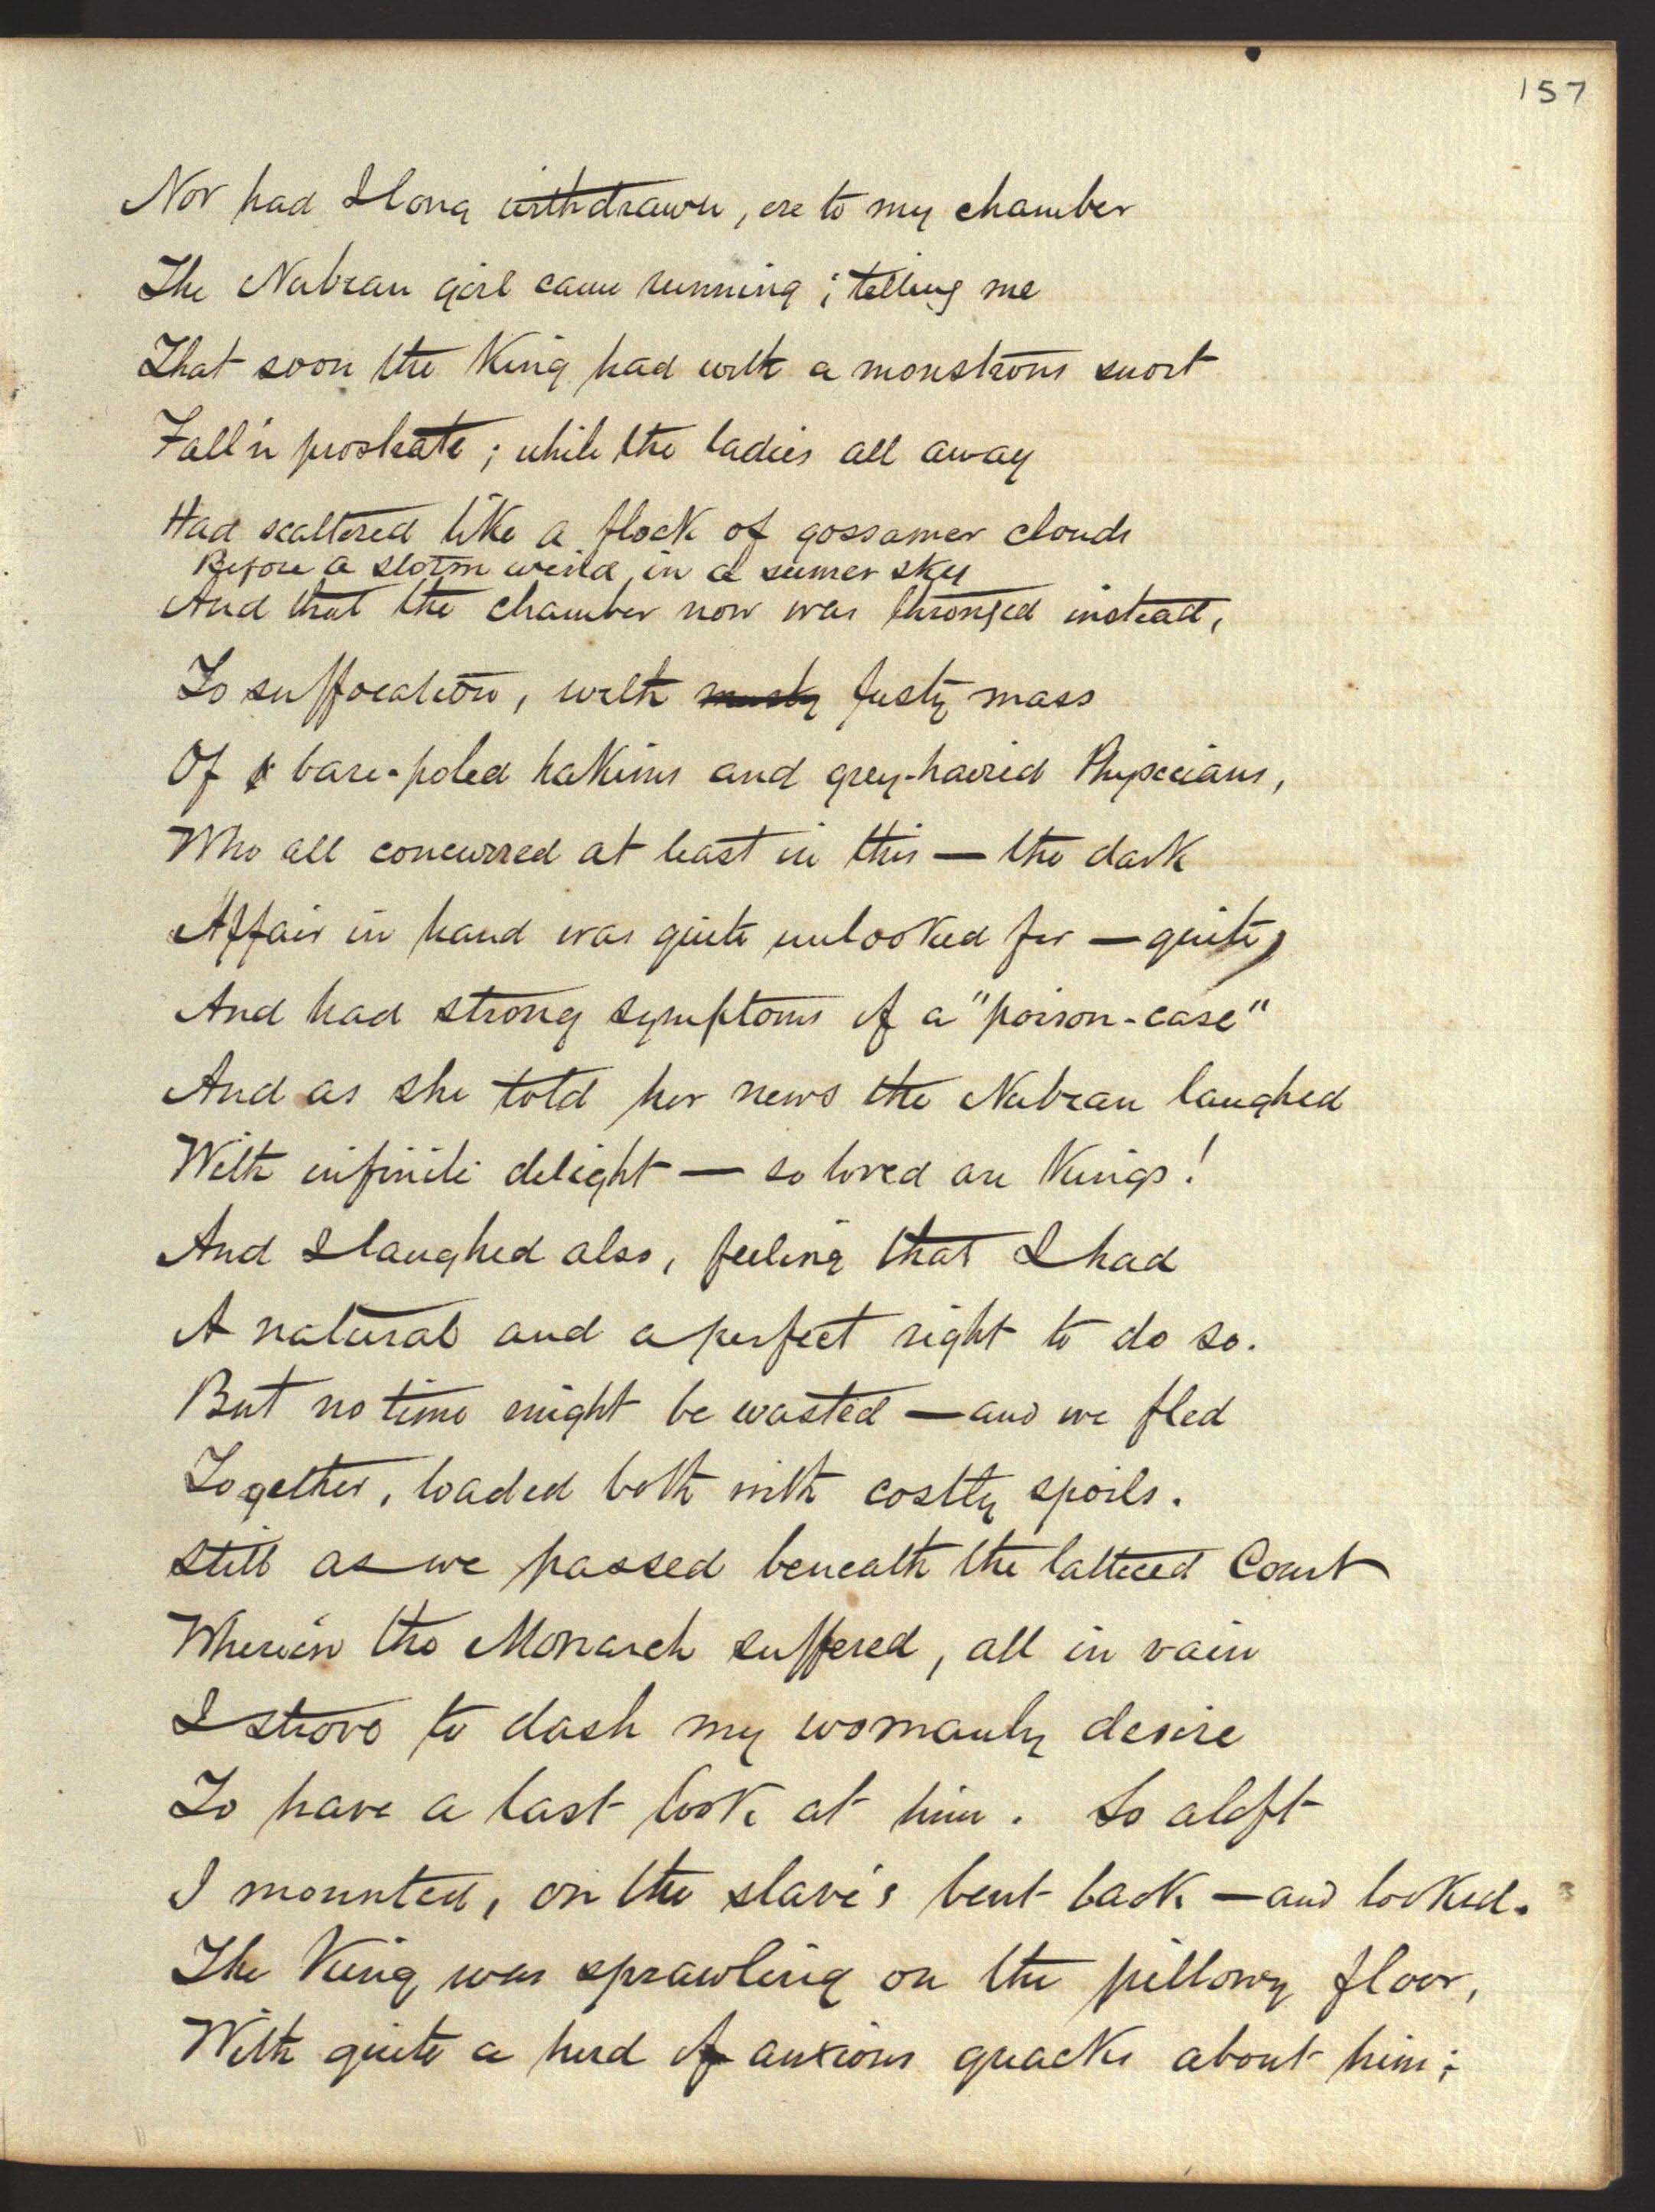 157
Nor had I long withdrawn, ere to my chamber
The Nubian girl came running; telling me
That soon the King had with a monstrous snort
Fall'n prostrate; while the ladies all away
Had scattered like a flock of gossamer clouds
Before a storm wind, in a sumer sky
And that the chamber now was thronged instead,
To suffocation, with musty fusty mass
Of bare-poled hakims and grey-haired Physicians,
Who all concurred at least in this — the dark
Affair in hand was quite unlooked for — quite,
And had strong symptoms of a "poison-case"
And as she told her news the Nubian laughed
With infinite delight — so loved are Kings!
And I laughed also, feeling that I had
A natural and a perfect right to do so.
But no time might be wasted — and we fled
Together, loaded both with costly spoils.
Still as we passed beneath the latticed Court
Wherein the Monarch suffered, all in vain
I strove to dash my womanly desire
To have a last look at him. So aloft
I mounted, on the slave's bent back — and looked.
The King was sprawling on the pillowy floor,
With quite a herd of anxious quacks about him;